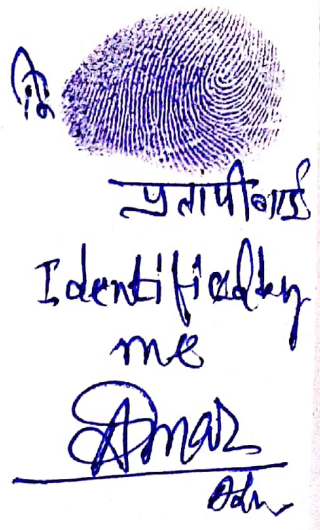 नि
प्रतापीबाई
Identified by
me
Amar
Adv